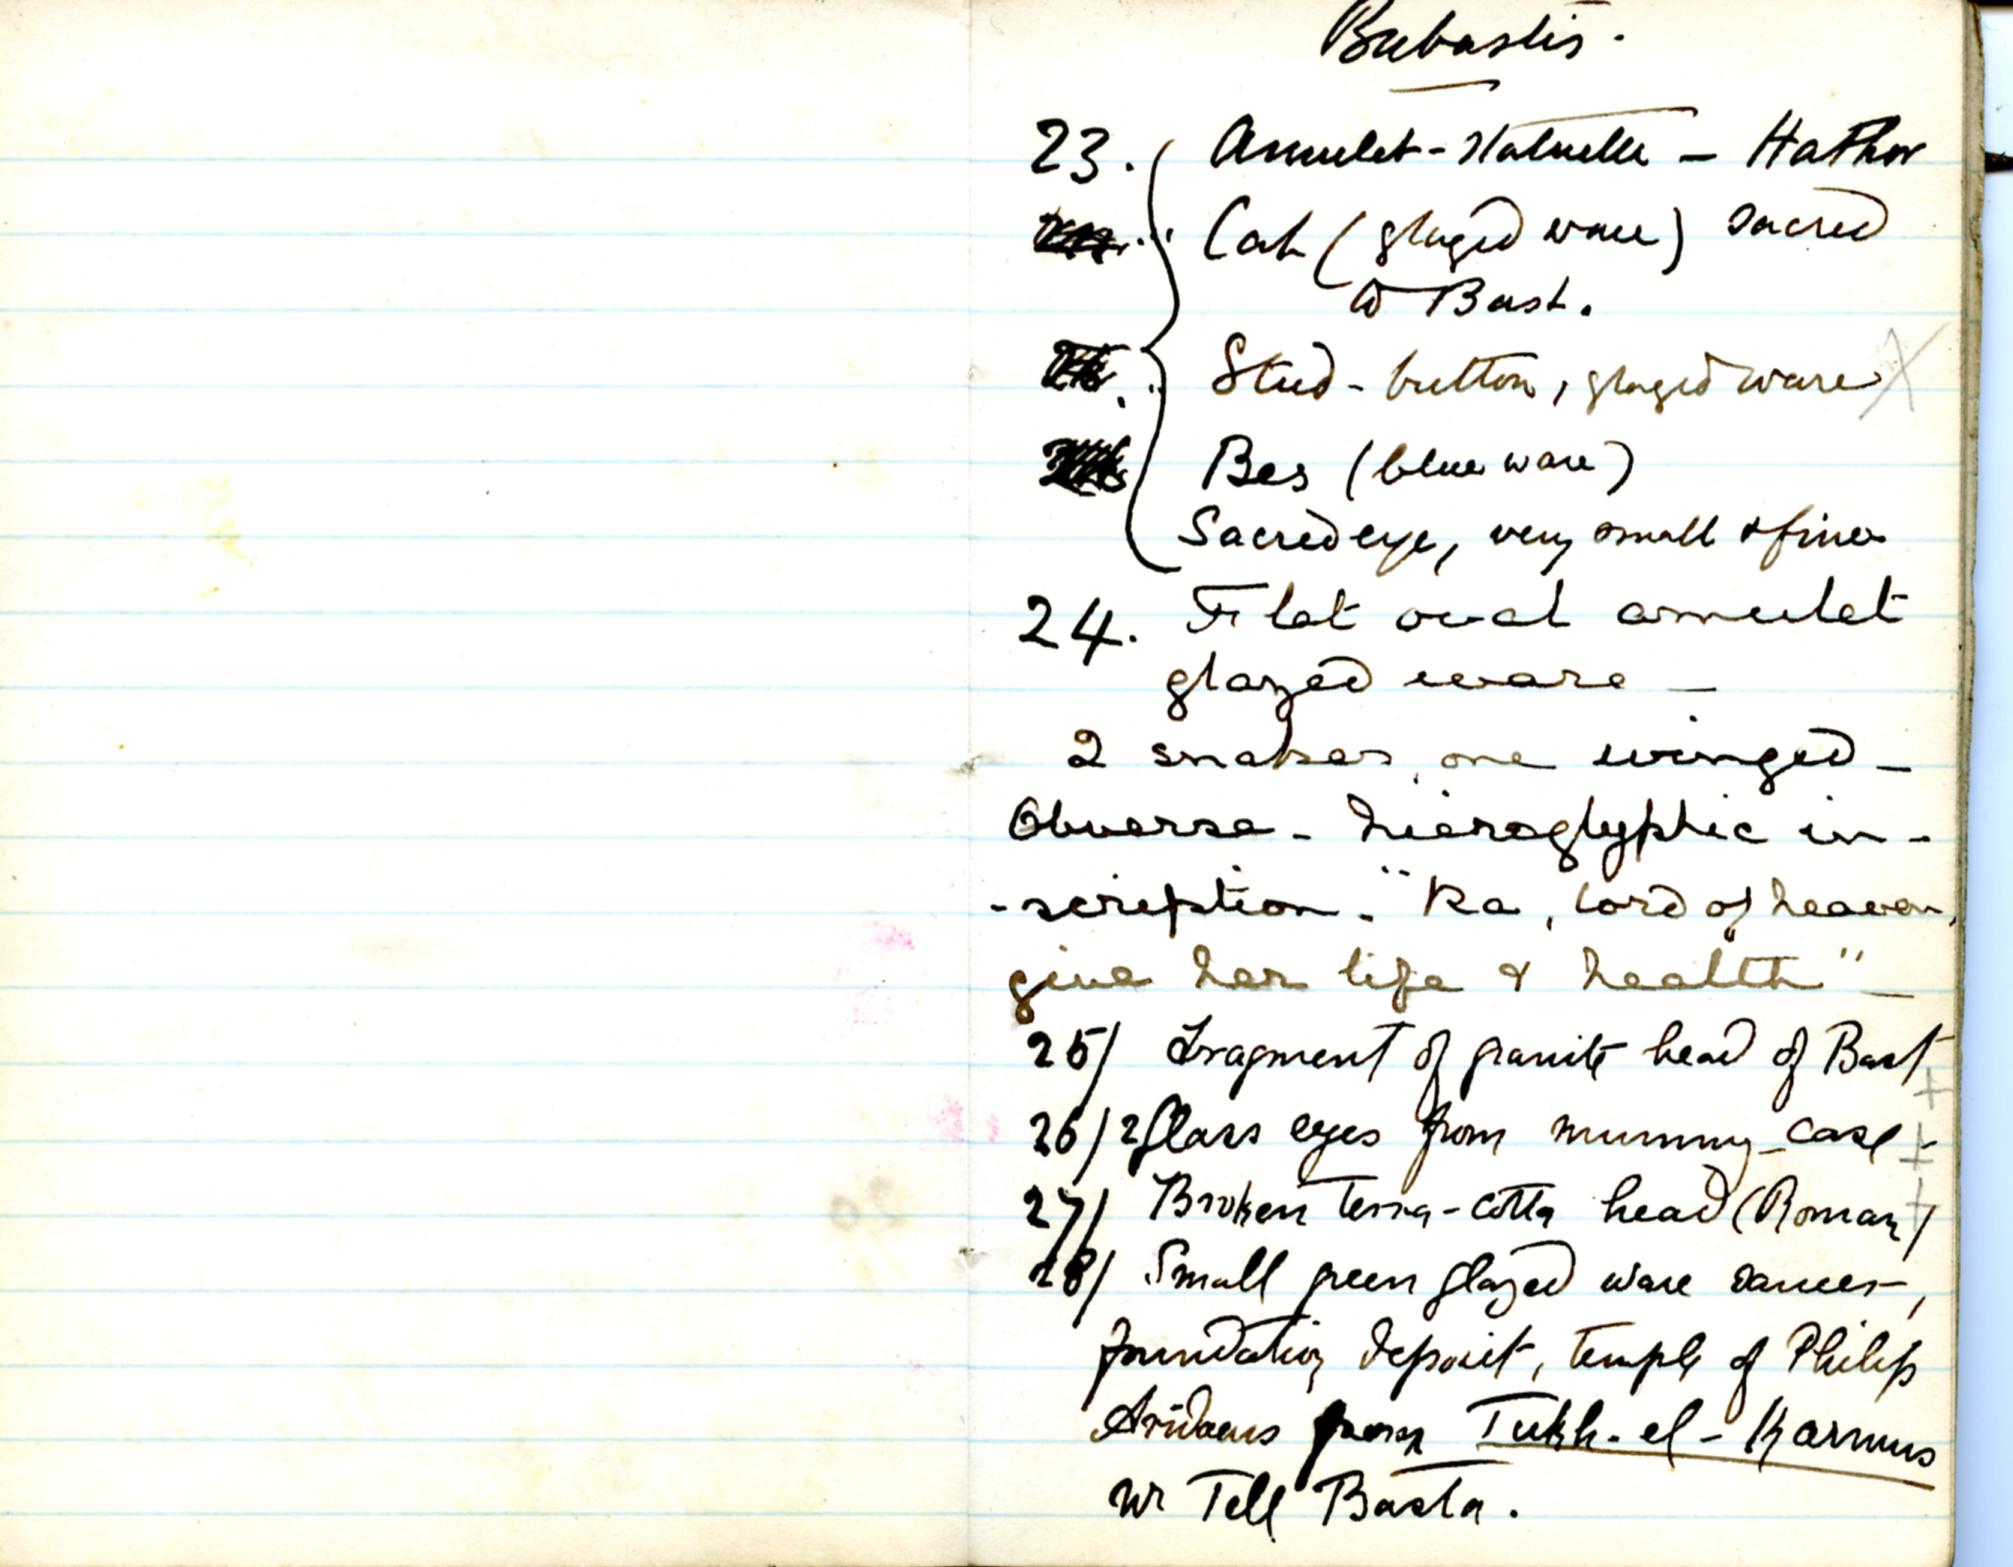 Bubastis.
23. Amulet-Statuette - Hathor
Cat (glazed ware) sacred
to Bast.
Stud-button, glazed ware X
Bes (blue ware)
Sacred eye, very small & fine
24. Flat oval amulet
glazed ware -
2 snakes, one winged -
Obverse - hieroglyphic in-
-scription. "Ra, lord of heaven,
give her life & health" -
25/ Fragment of granite head of Bast +
26/ 2 Glass eyes from mummy-case - +
27/ Broken terra-cotta head (Roman) +
28/ Small green glazed ware saucer,
foundation deposit, temple of Philip
Aridaeus from Tukh-el-Karmus
nr Tell Basta.